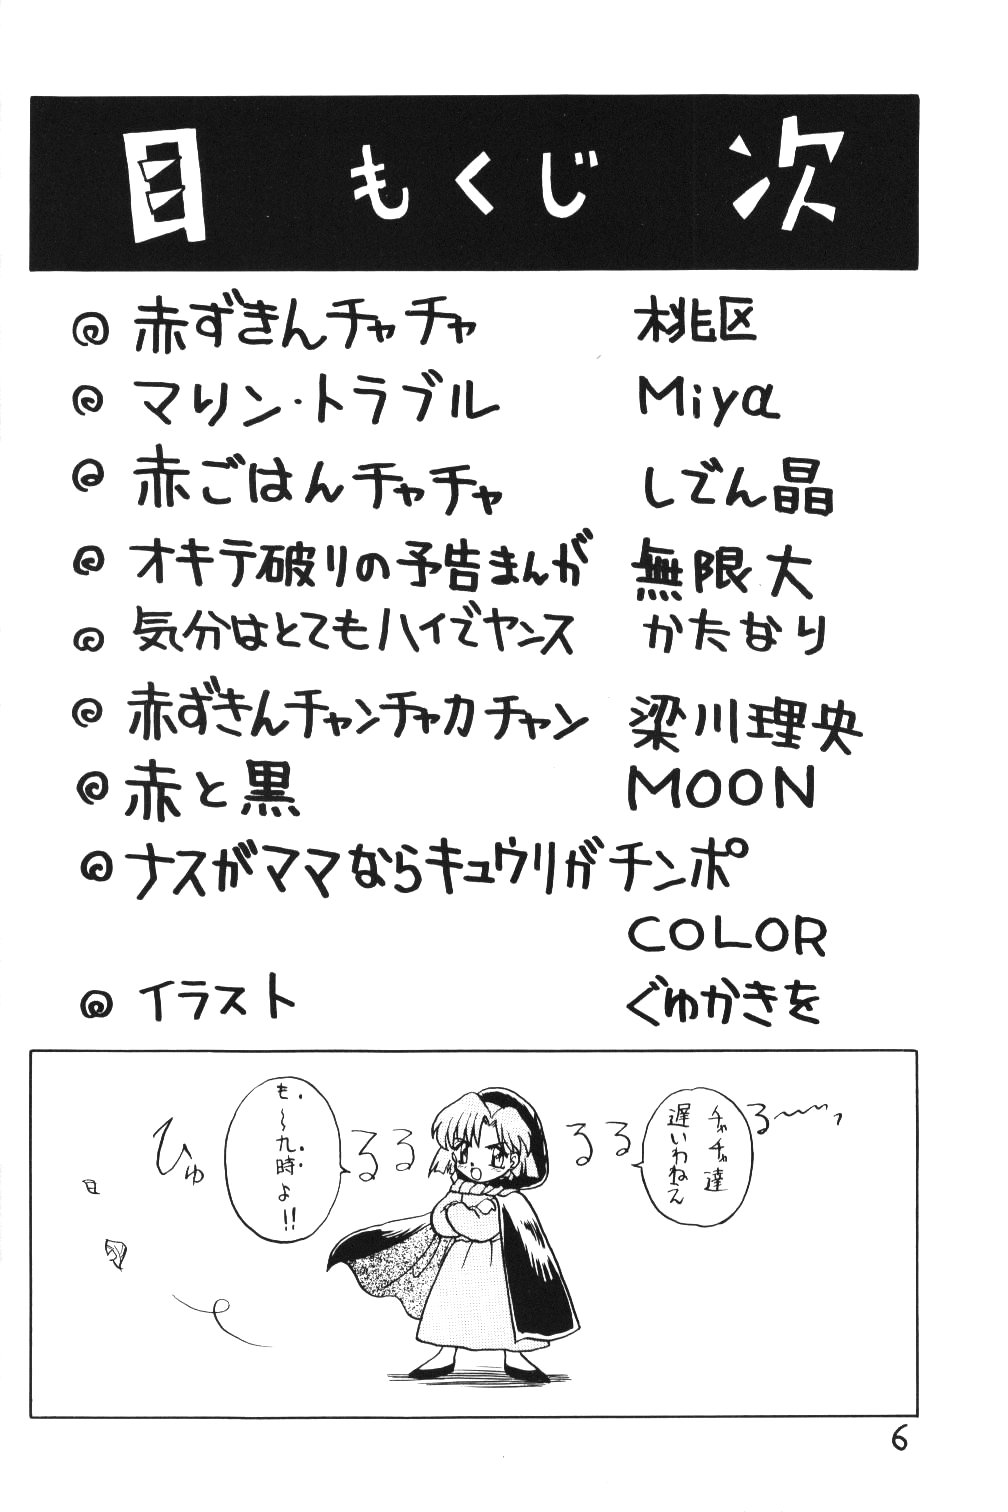 目 もくじ 次
赤ずきんチャチャ 桃区
マリン・トラブル Miya
赤ごはんチャチャ しでん晶
オキテ破りの予告まんが 無限大
気分はとてもハイでヤンス かたなり
赤ずきんチャンチャカチャン 梁川理央
赤と黒 MOON
ナスがママならキュウリがチンポ
COLOR
イラスト ぐゅかきを
る〜〜っ
チャチャ達
遅いわねえ
るる
るる
も〜九時よ!!
ひゅ
6